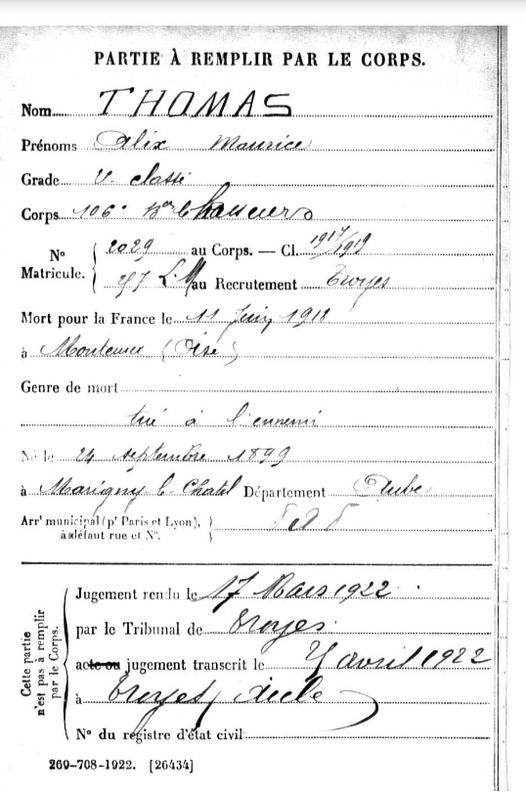 PARTIE À REMPLIR PAR LE CORPS.
Nom THOMAS
Prénoms Alix Maurice
Grade 2e classe
Corps 106e Bon Chasseurs
No Matricule. 2029 au Corps. — Cl. 1917/1919
L.M au Recrutement Troyes
Mort pour la France le 11 Juin 1918
à (Oise)
Genre de mort
tué à l'ennemi
Né le 24 septembre 1899
à Marigny le Chatel Département Aube
Arrt municipal (pr Paris et Lyon),
à défaut rue et No.
Cette partie
n'est pas à remplir
par le Corps.
Jugement rendu le 17 Mars 1922
par le Tribunal de Troyes
acte ou jugement transcrit le avril 1922
à Troyes, Aube
No du registre d'état civil
269-708-1922. [26434]